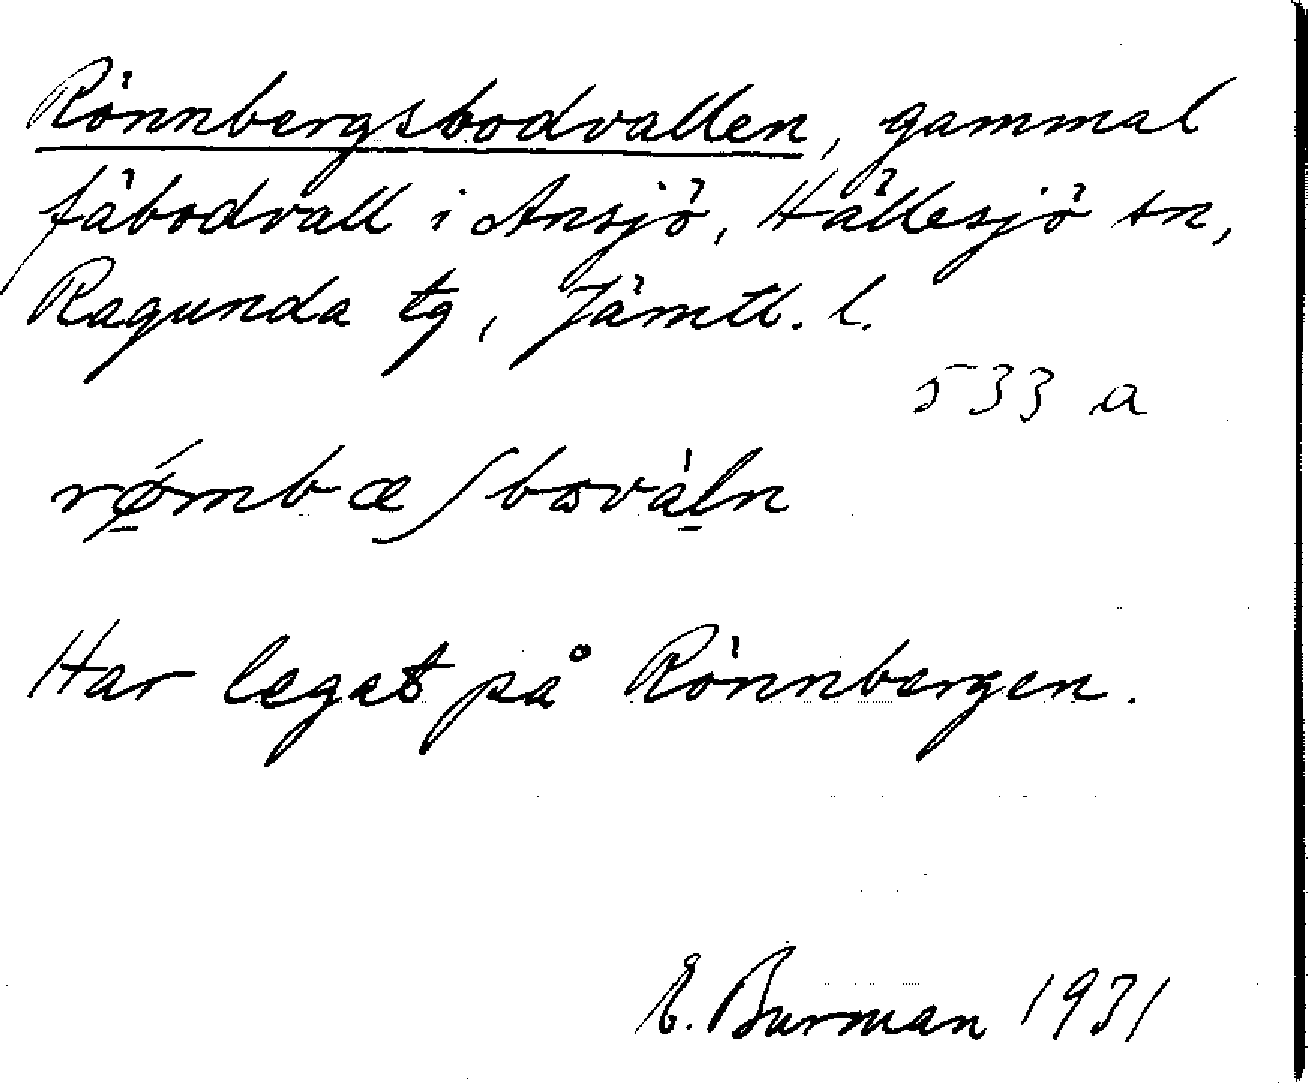 Rönnbergsbodvallen, gammal
fäbodvall i Ansjö, Hällesjö sn,
Ragunda tg, Jämtl. l.
533 a
rǿ̱mbæʃbovàḻn
Har legat på Rönnbergen.
E. Burman 1931